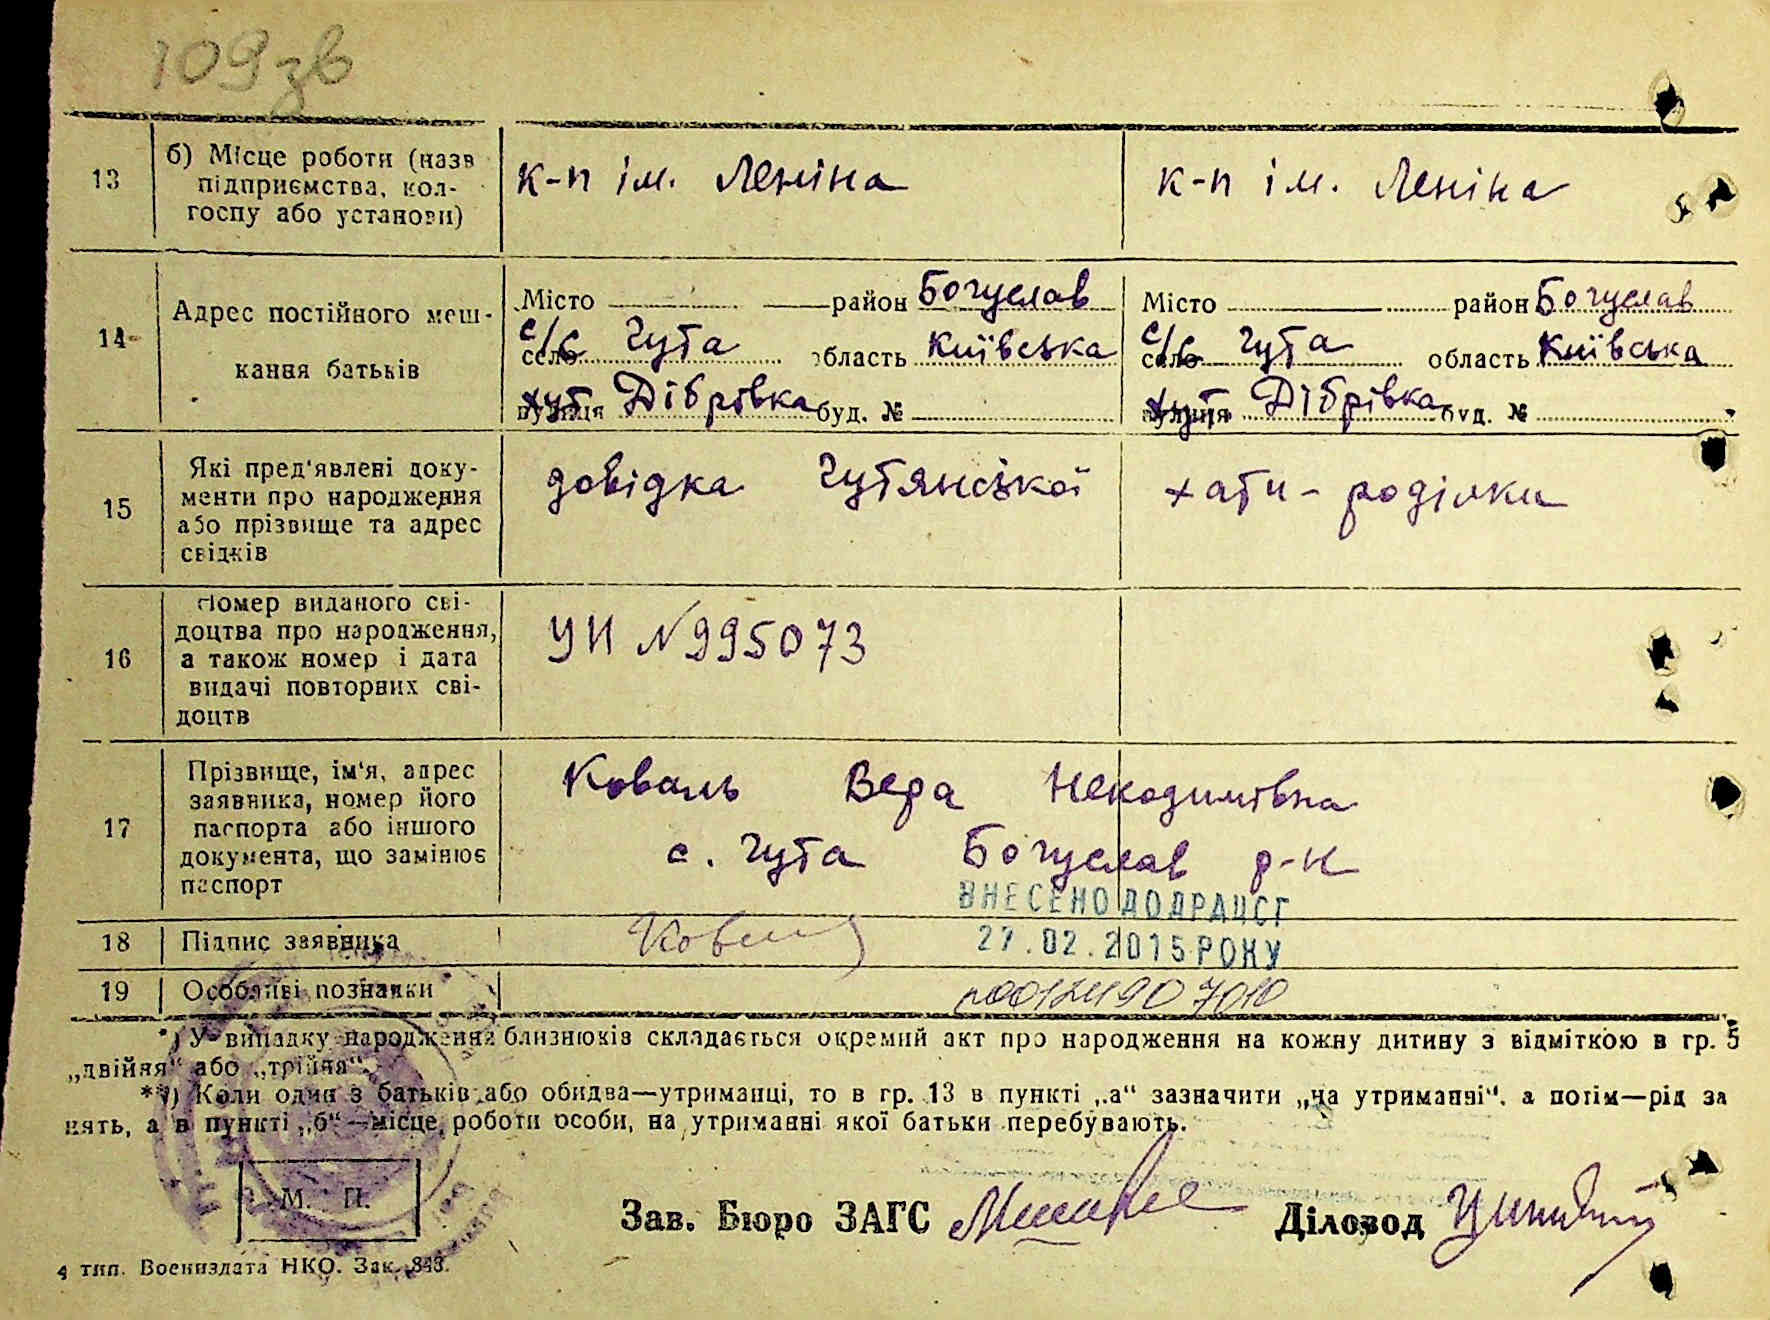 109 зв
13 б) Місце роботи (назв к-п ім. Леніна к-п ім. Леніна
підприємства, кол-
госпу або установи)
14 Адрес постійного меш-
кання батьків
Місто район Богуслав Місто район Богуслав
с/с село Гута область Київська с/с село Гута область Київська
хут. вулиця Дібрівка буд. № хут. вулиця Дібрівка буд. №
15 Які пред'явлені доку-
менти про народження
або прізвище та адрес
свідків
довідка Гутянської хати-роділки
16 Номер виданого сві-
доцтва про народження,
а також номер і дата
видачі повторних сві-
доцтв
УН №995073
17 Прізвище, ім'я, адрес
заявника, номер його
паспорта або іншого
документа, що замінює
паспорт
Коваль Вера Некодимівна
с. Гута Богуслав р-н
ВНЕСЕНО ДО ДРАЦСГ
18 Підпис заявника
27.02.2015 РОКУ
19 Особливі познаки
*) У випадку народження близнюків складається окремий акт про народження на кожну дитину з відміткою в гр. 5
„двійня“ або „трійня“.
**) Коли один з батьків або обидва—утриманці, то в гр. 13 в пункті „а“ зазначити „на утриманні“, а потім—рід за
нять, а в пункті „б“—місце роботи особи, на утриманні якої батьки перебувають.
М. П.
Зав. Бюро ЗАГС Діловод
4 тип. Воениздата НКО. Зак. 343.